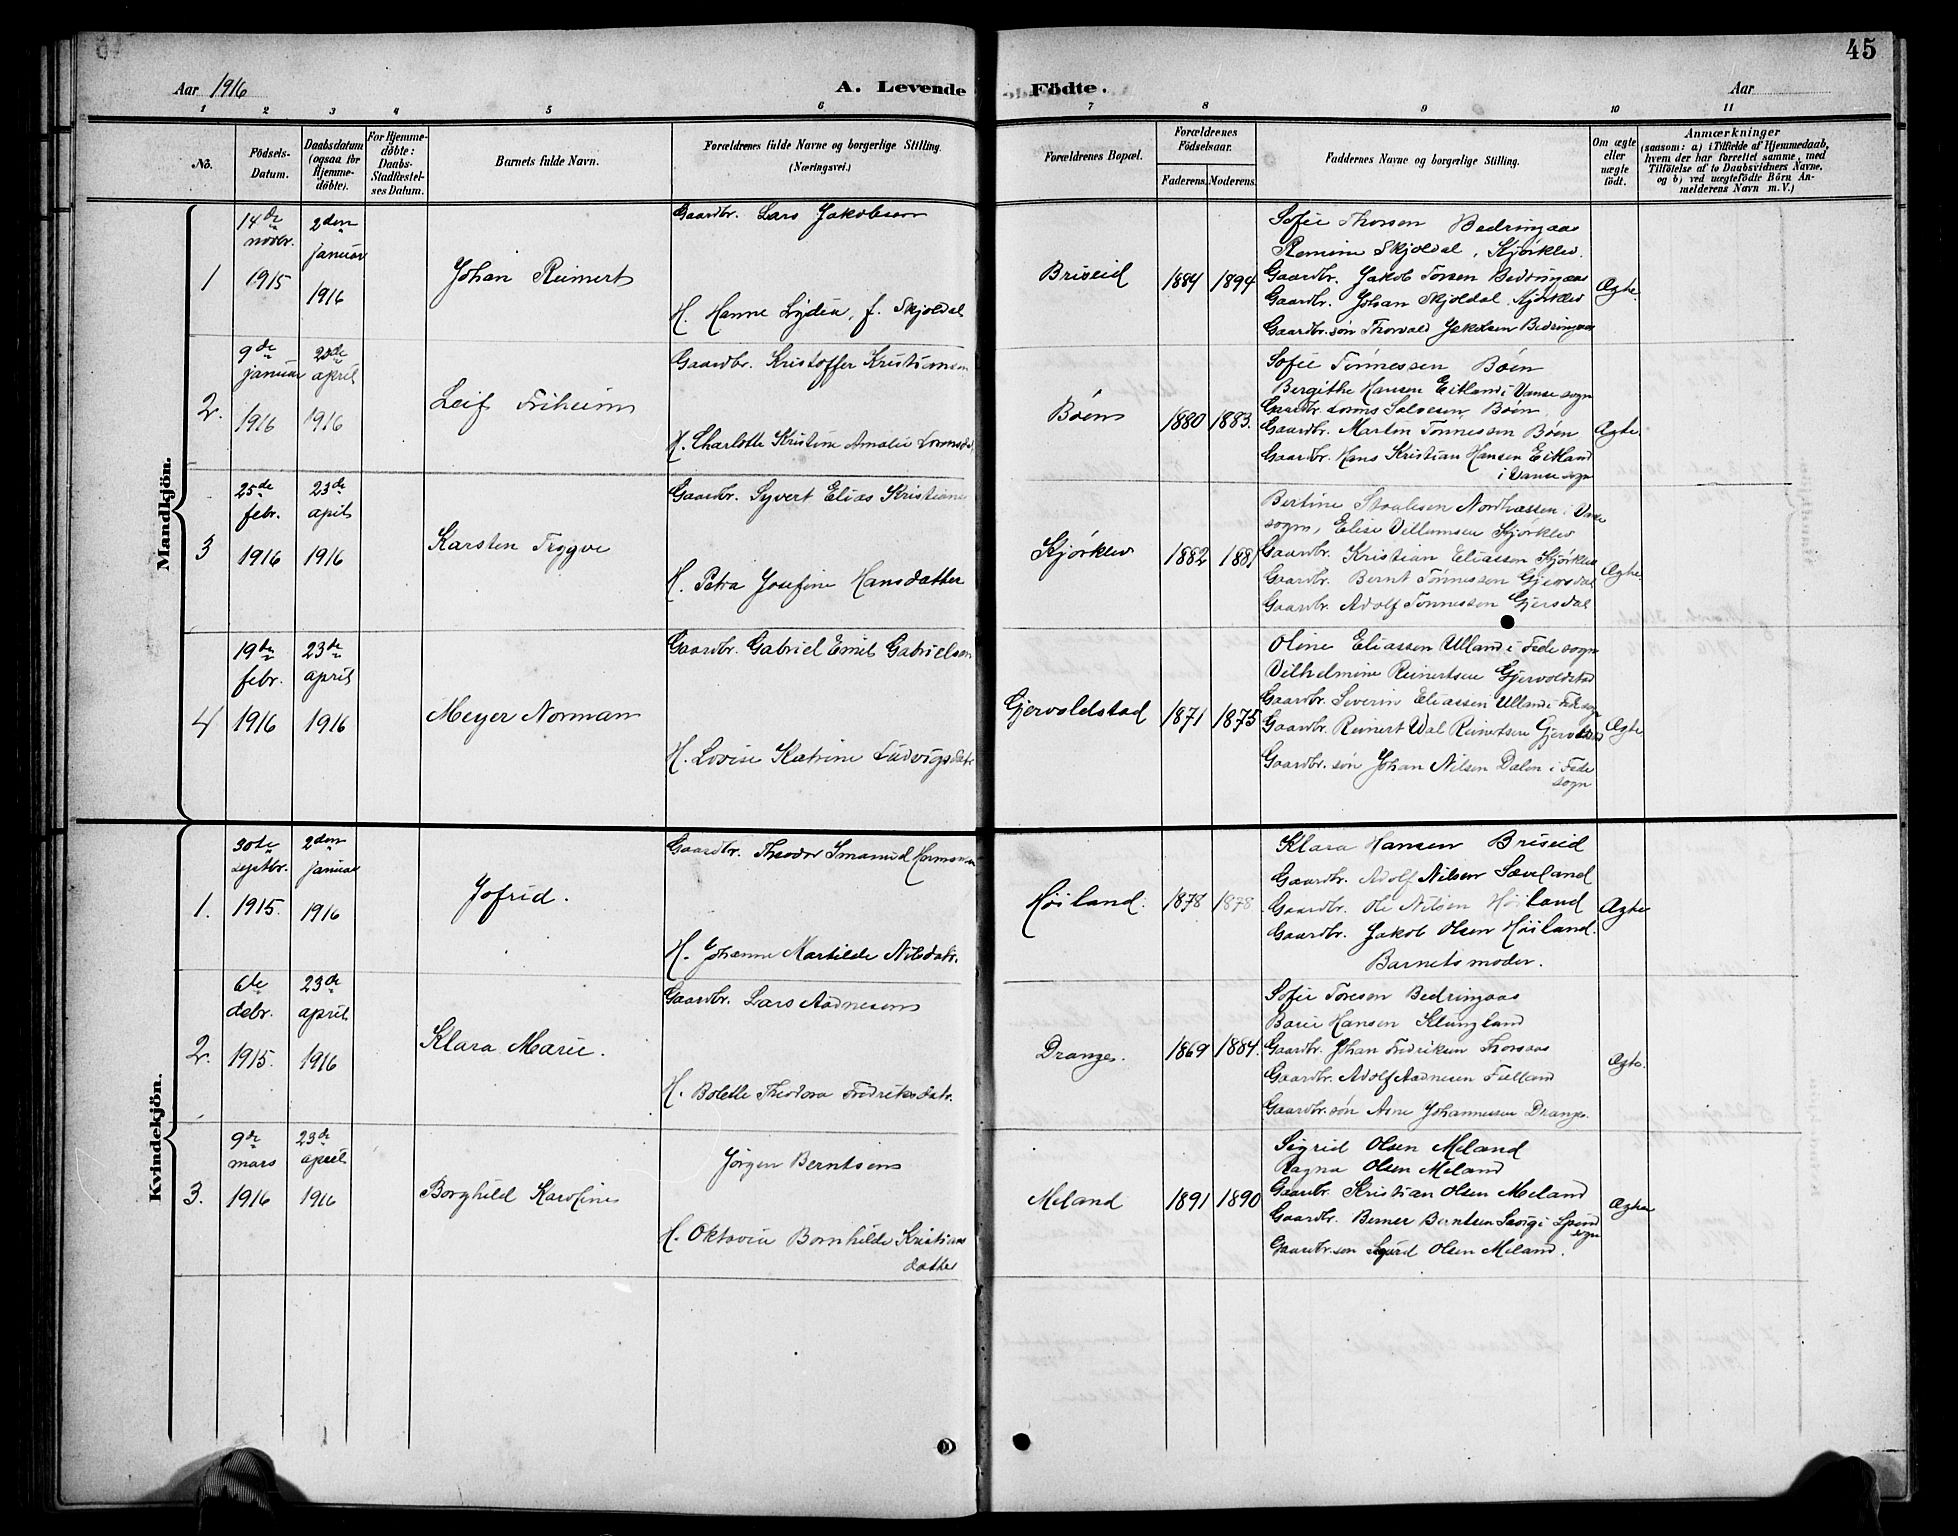 45
Aar 1916
A. Levende Födte.
Aar
1 2 3 4 5 6 7 8 9 10 11
No.
Födsels-Datum.
Daabsdatum (ogsaa for Hjemme-döbte).
For Hjemme-döbte: Daabs-Stadfæstel-ses Datum.
Barnets fulde Navn.
Forældrenes fulde Navne og borgerlige Stilling. (Næringsvei.)
Forældrenes Bopæl.
Forældrenes Födselsaar.
Faderens. Moderens.
Faddernes Navne og borgerlige Stilling.
Om ægte eller uægte födt.
Anmærkninger
(saasom: a) i Tilfælde af Hjemmedaab, hvem der har forrettet samme, med Tilföielse af to Daabsvidners Navne, og b) ved uægtefödte Börn An-melderens Navn m. V.)
Mandkjön.
1
14de novbr. 1915
2den januar 1916
Johan Reimert
Gaardbr. Lars Jakobsen
H. Hanne Lydia, f. Skjoldal
Briseid
1884 1894
Sofie Thorsen Bedringaas
Ramine Skjoldal, Kjørklev.
Gaardbr. Jakob Torsen Bedringaas
Gaardbr. Johan Skjoldal, Kjørklev
Gaardbr.søn Thorvald Jakobsen Bedringaas
Ægte.
2.
9de januar 1916
20de april 1916
Leif Friheim
Gaardbr. Kristoffer Kristiansen
H. Charlotte Kristine Amalie
Bøen
1880 1883.
Sofie Tønnessen Bøen
Bergithe Hansen Eikland i Vanse sogn
Gaardbr. Salvesen Bøen
Gaardbr. Martin Tønnessen Bøen
Gaardbr. Hans Kristian Hansen Eikland
i Vanse sogn
Ægte.
3
25de febr. 1916
23de april 1916
Karsten Trygve
Gaardbr. Syvert Elias Kristians
H. Petra Josefine Hansdatter
Kjørklev
1882 1881
Bertine Staalesen Nordhassen i Vanse
sogn, Elise Villumsen Kjørklev
Gaardbr. Kristian Eliassen Kjørklev
Gaardbr. Bernt Tønnessen Gjersdal
Gaardbr. Adolf Tønnessen Gjersdal
Ægte.
4
19de febr. 1916
23de april 1916
Meyer Norman
Gaardbr. Gabriel Emil Gabrielsen
H. Lovise Katrine Ludvigsdatr
Gjervoldstad
1871 1875
Oline Eliassen Ulland i Fede sogn
Vilhelmine Reinertsen Gjervoldstad
Gaardbr. Severin Eliassen Ulland i Fede sogn
Gaardbr. Reinert Wal Reinertsen
Gaardbr.søn Johan Nilsen Dalen i Fede
sogn
Ægte
Kvindekjön.
1.
30te septbr. 1915.
2den januar 1916
Jofrid.
Gaardbr. Theodor Imanuel Hermansen
H. Johanne Martilde Nilsdatr.
Høiland.
1878 1878
Klara Hansen Briseid
Gaardbr. Adolf Nilsen Sæveland
Gaardbr. Ole Nilsen Høiland
Gaardbr. Jakob Olsen Høiland.
Barnets moder.
Ægte
2.
6te debr. 1915.
23de april 1916
Klara Marie.
Gaardbr. Lars Aadnesen
H. Bolette Theodora Fredriksdatr.
Dranges.
1869 1884.
Sofie Toresen Bedringaas
Hansen Klungland
Gaardbr. Johan Fredriksen
Gaardbr. Adolf Aadnesen
Gaardbr.søn Arne Johannesen Dranges.
Ægte.
3.
9de mars 1916
23de april 1916
Borghild Karoline
Jørgen Berntsen
H. Oktovia Bornhilde Kristians
datter
Meland
1891 1890
Sigrid Olsen Meland
Ragna Olsen Meland
Gaardbr. Kristian Olsen Meland
Gaardbr. Berner Berntsen
sogn
Gaardbr.søn Sigurd Olsen Meland.
Ægte